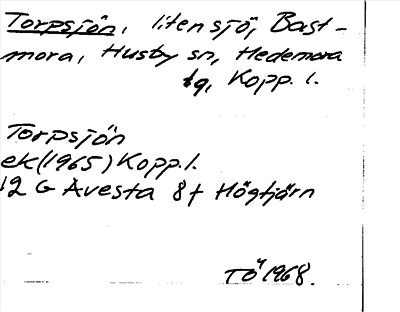 Torpsjön, liten sjö, Bast-
mora, Husby sn, Hedemora
tg, Kopp. l.
Torpsjön
ek(1965) Kopp. l.
12 G Avesta 8f Högtjärn
TÖ 1968.